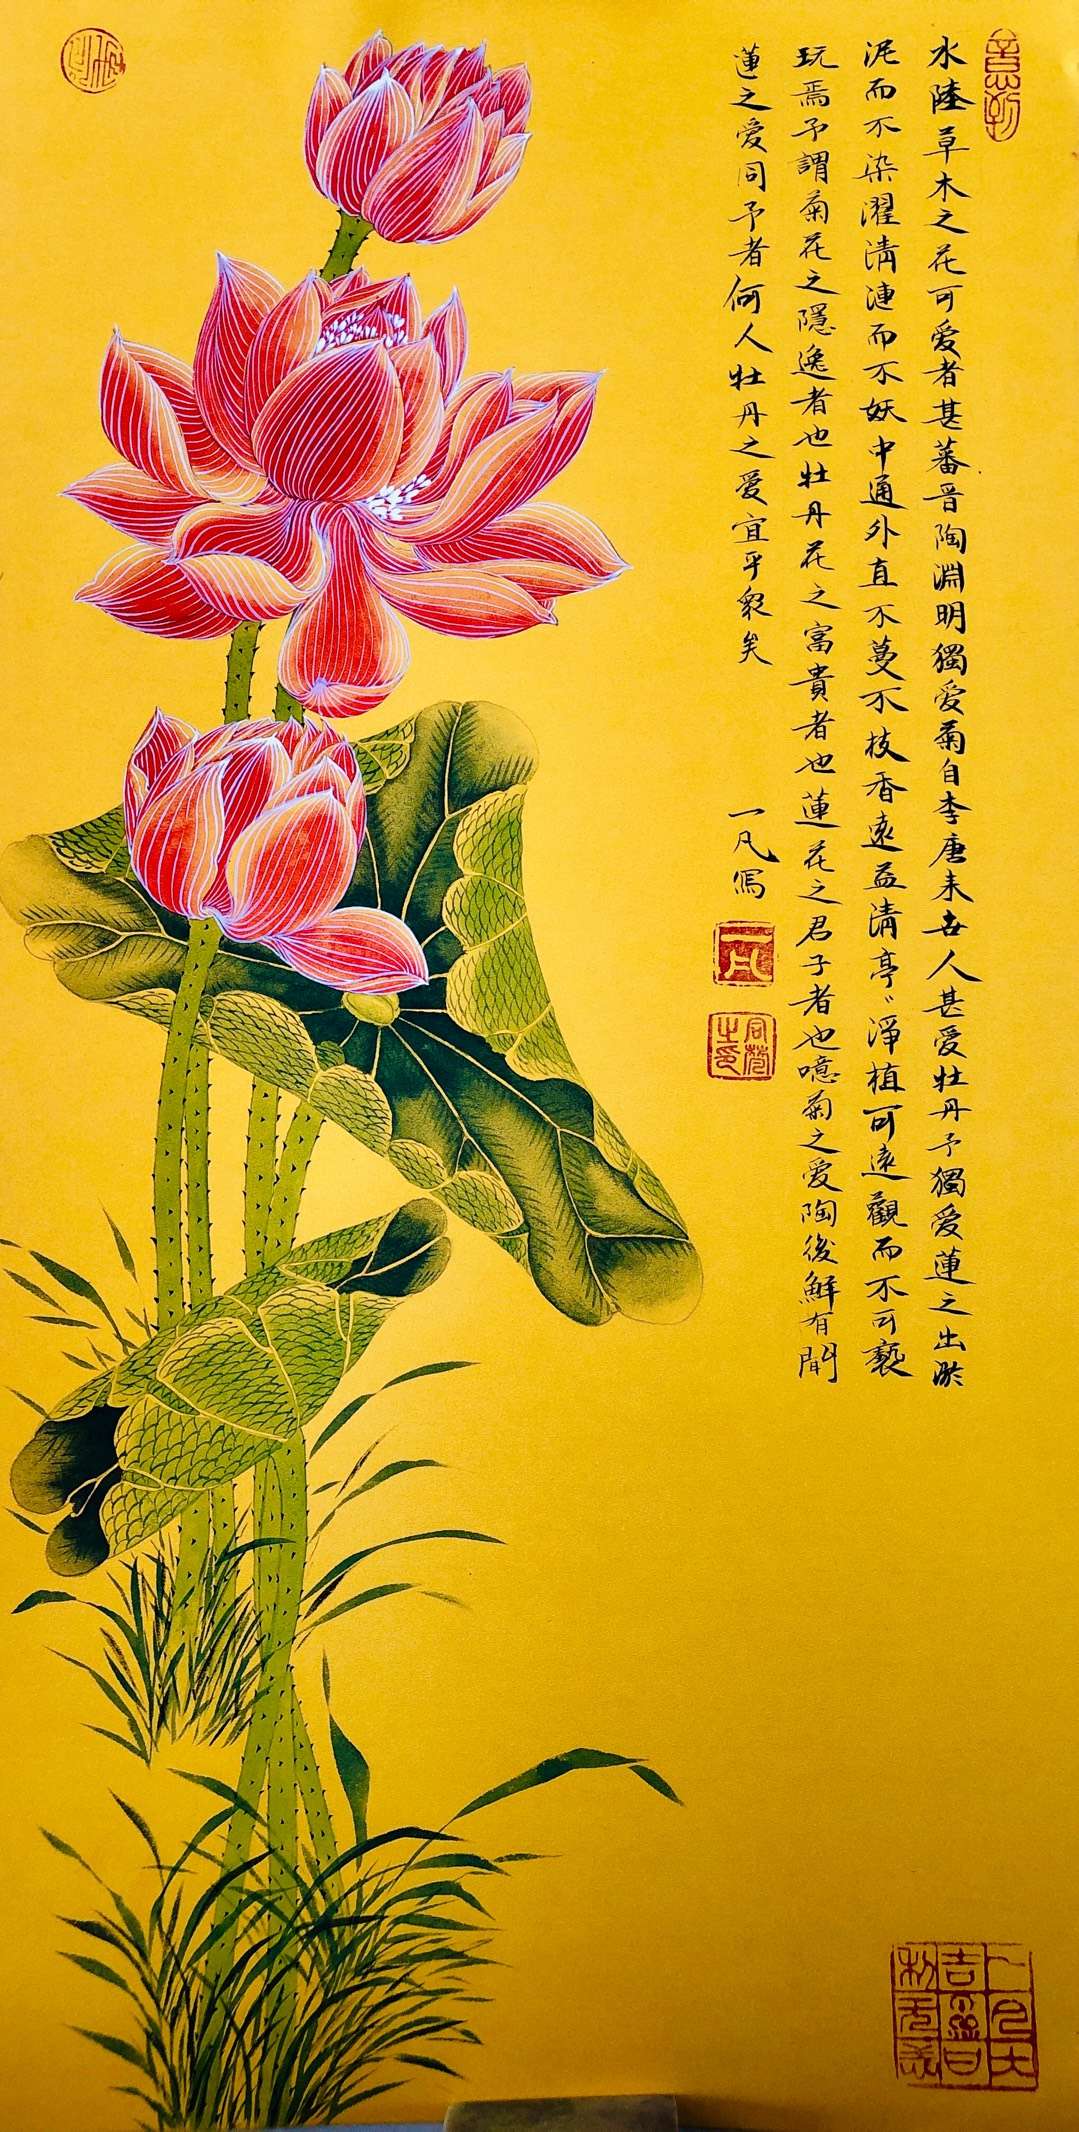 水陸草木之花可愛者甚蕃晉陶淵明獨愛菊自李唐来世人甚愛牡丹予獨愛蓮之出淤
泥而不染濯清漣而不妖中通外直不蔓不枝香遠益清亭〻淨植可遠觀而不可褻
玩焉予謂菊花之隱逸者也牡丹花之富貴者也蓮花之君子者也噫菊之愛陶後鮮有聞
蓮之愛同予者何人牡丹之愛宜乎衆矣
一凡寫
一凡